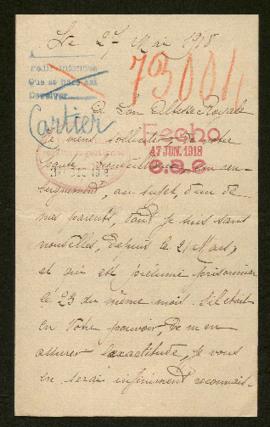 Le 27 Mai 1918
73001
A
Que se haga así
Cartier
A Son Altesse Royale
Je viens solliciter de votre
haute bienveillance un ren-
Fecho
17 JUN. 1918
seignement, au sujet d'un de
mes parents, dont je suis sans
nouvelles, depuis le 21 Mars,
et qui été présumé prisonnier
le 23 du même mois. S'il était
en Votre pouvoir, de m'en
assurer l'exactitude, je vous
en serai infiniment reconnais-